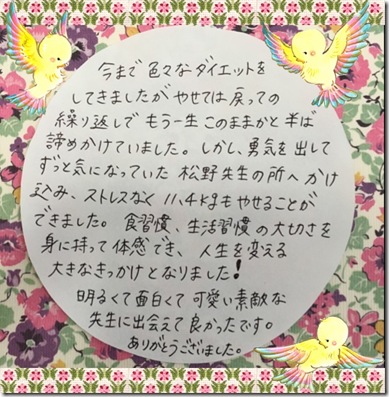 今まで色々なダイエットを
してきましたがやせては戻っての
繰り返しでもう一生このままかと半ば
諦めかけていました。しかし、勇気を出して
ずっと気になっていた松野先生の所へかけ
込み、ストレスなく11.4kgもやせることが
できました。食習慣、生活習慣の大切さを
身に持って体感でき、人生を変える
大きなきっかけとなりました！
明るくて面白くて可愛い素敵な
先生に出会えて良かったです。
ありがとうございました。